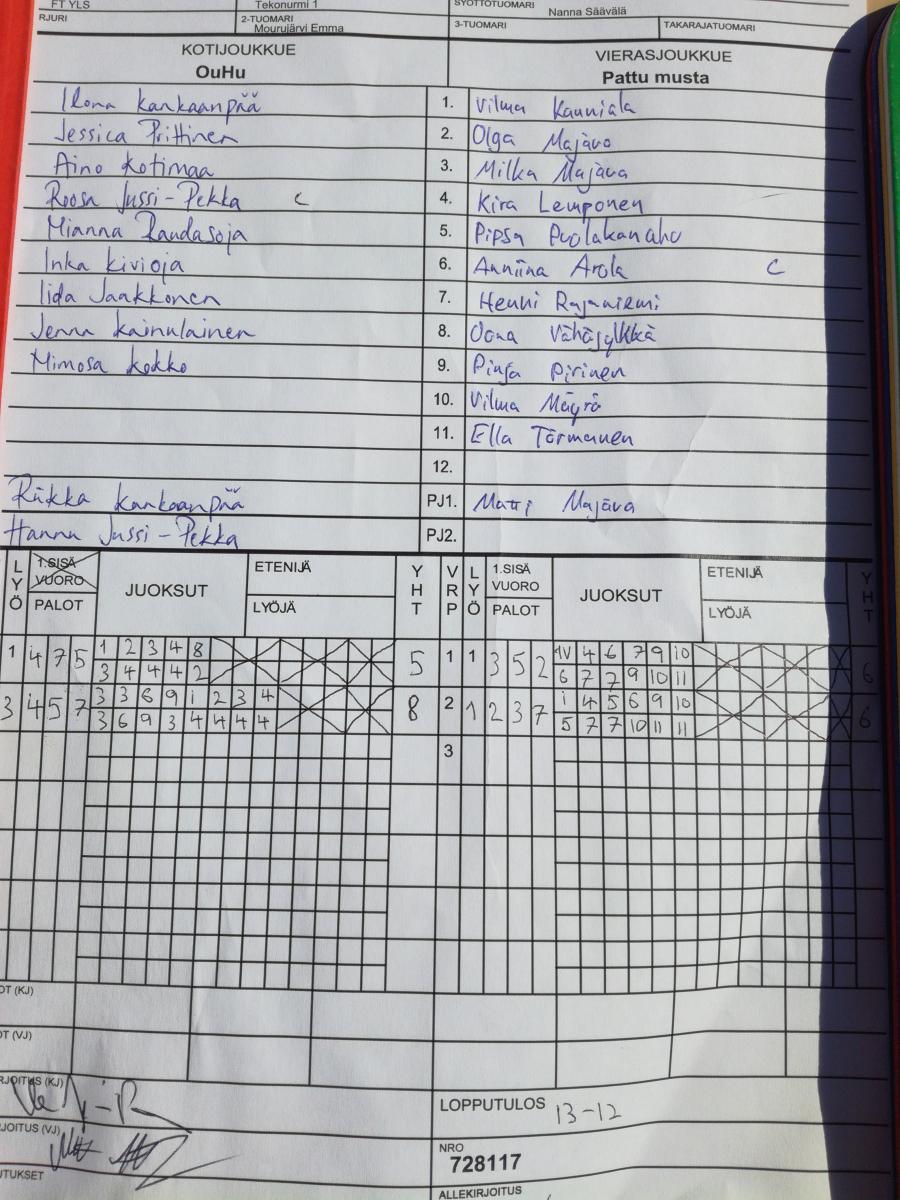 FT YLS Tekonurmi 1 SYÖTTÖTUOMARI Nanna Säävälä
RJURI 2-TUOMARI Mourujärvi Emma 3-TUOMARI TAKARAJATUOMARI
KOTIJOUKKUE VIERASJOUKKUE
OuHu Pattu musta
Ilona Kankaanpää 1. Vilma Kauniala
Jessica Prittinen 2. Olga Majava
Aino Kotimaa 3. Milka Majava
Roosa Jussi-Pekka C 4. Kira Lemponen
Mianna Raudasoja 5. Pipsa Puolakanaho
Inka Kivioja 6. Anniina Arola C
Iida Jaakkonen 7. Henni Rajaniemi
Jenna Kainulainen 8. Oona Vähäjylkkä
Mimosa Kokko 9. Pinja Pirinen
10. Vilma Mäyrä
11. Ella Törmänen
12.
Riikka Kankaanpää PJ1. Matti Majava
Hannu Jussi-Pekka PJ2.
LYÖ 1.SISÄ VUORO JUOKSUT ETENIJÄ YHT VRP LYÖ 1.SISÄ VUORO JUOKSUT ETENIJÄ YHT
PALOT LYÖJÄ PALOT LYÖJÄ
1 4 7 5 1 2 3 4 8 5 1 1 3 5 2 1V 4 6 7 9 10 6
3 4 4 4 2 6 7 7 9 10 11
3 4 5 7 3 3 6 9 1 2 3 4 8 2 1 2 3 7 1 4 5 6 9 10 6
3 6 9 3 4 4 4 4 5 7 7 10 11 11
3
OT (KJ)
OT (VJ)
RJOITUS (KJ)
LOPPUTULOS 13-12
JOITUS (VJ)
NRO
728117
UTUKSET
ALLEKIRJOITUS